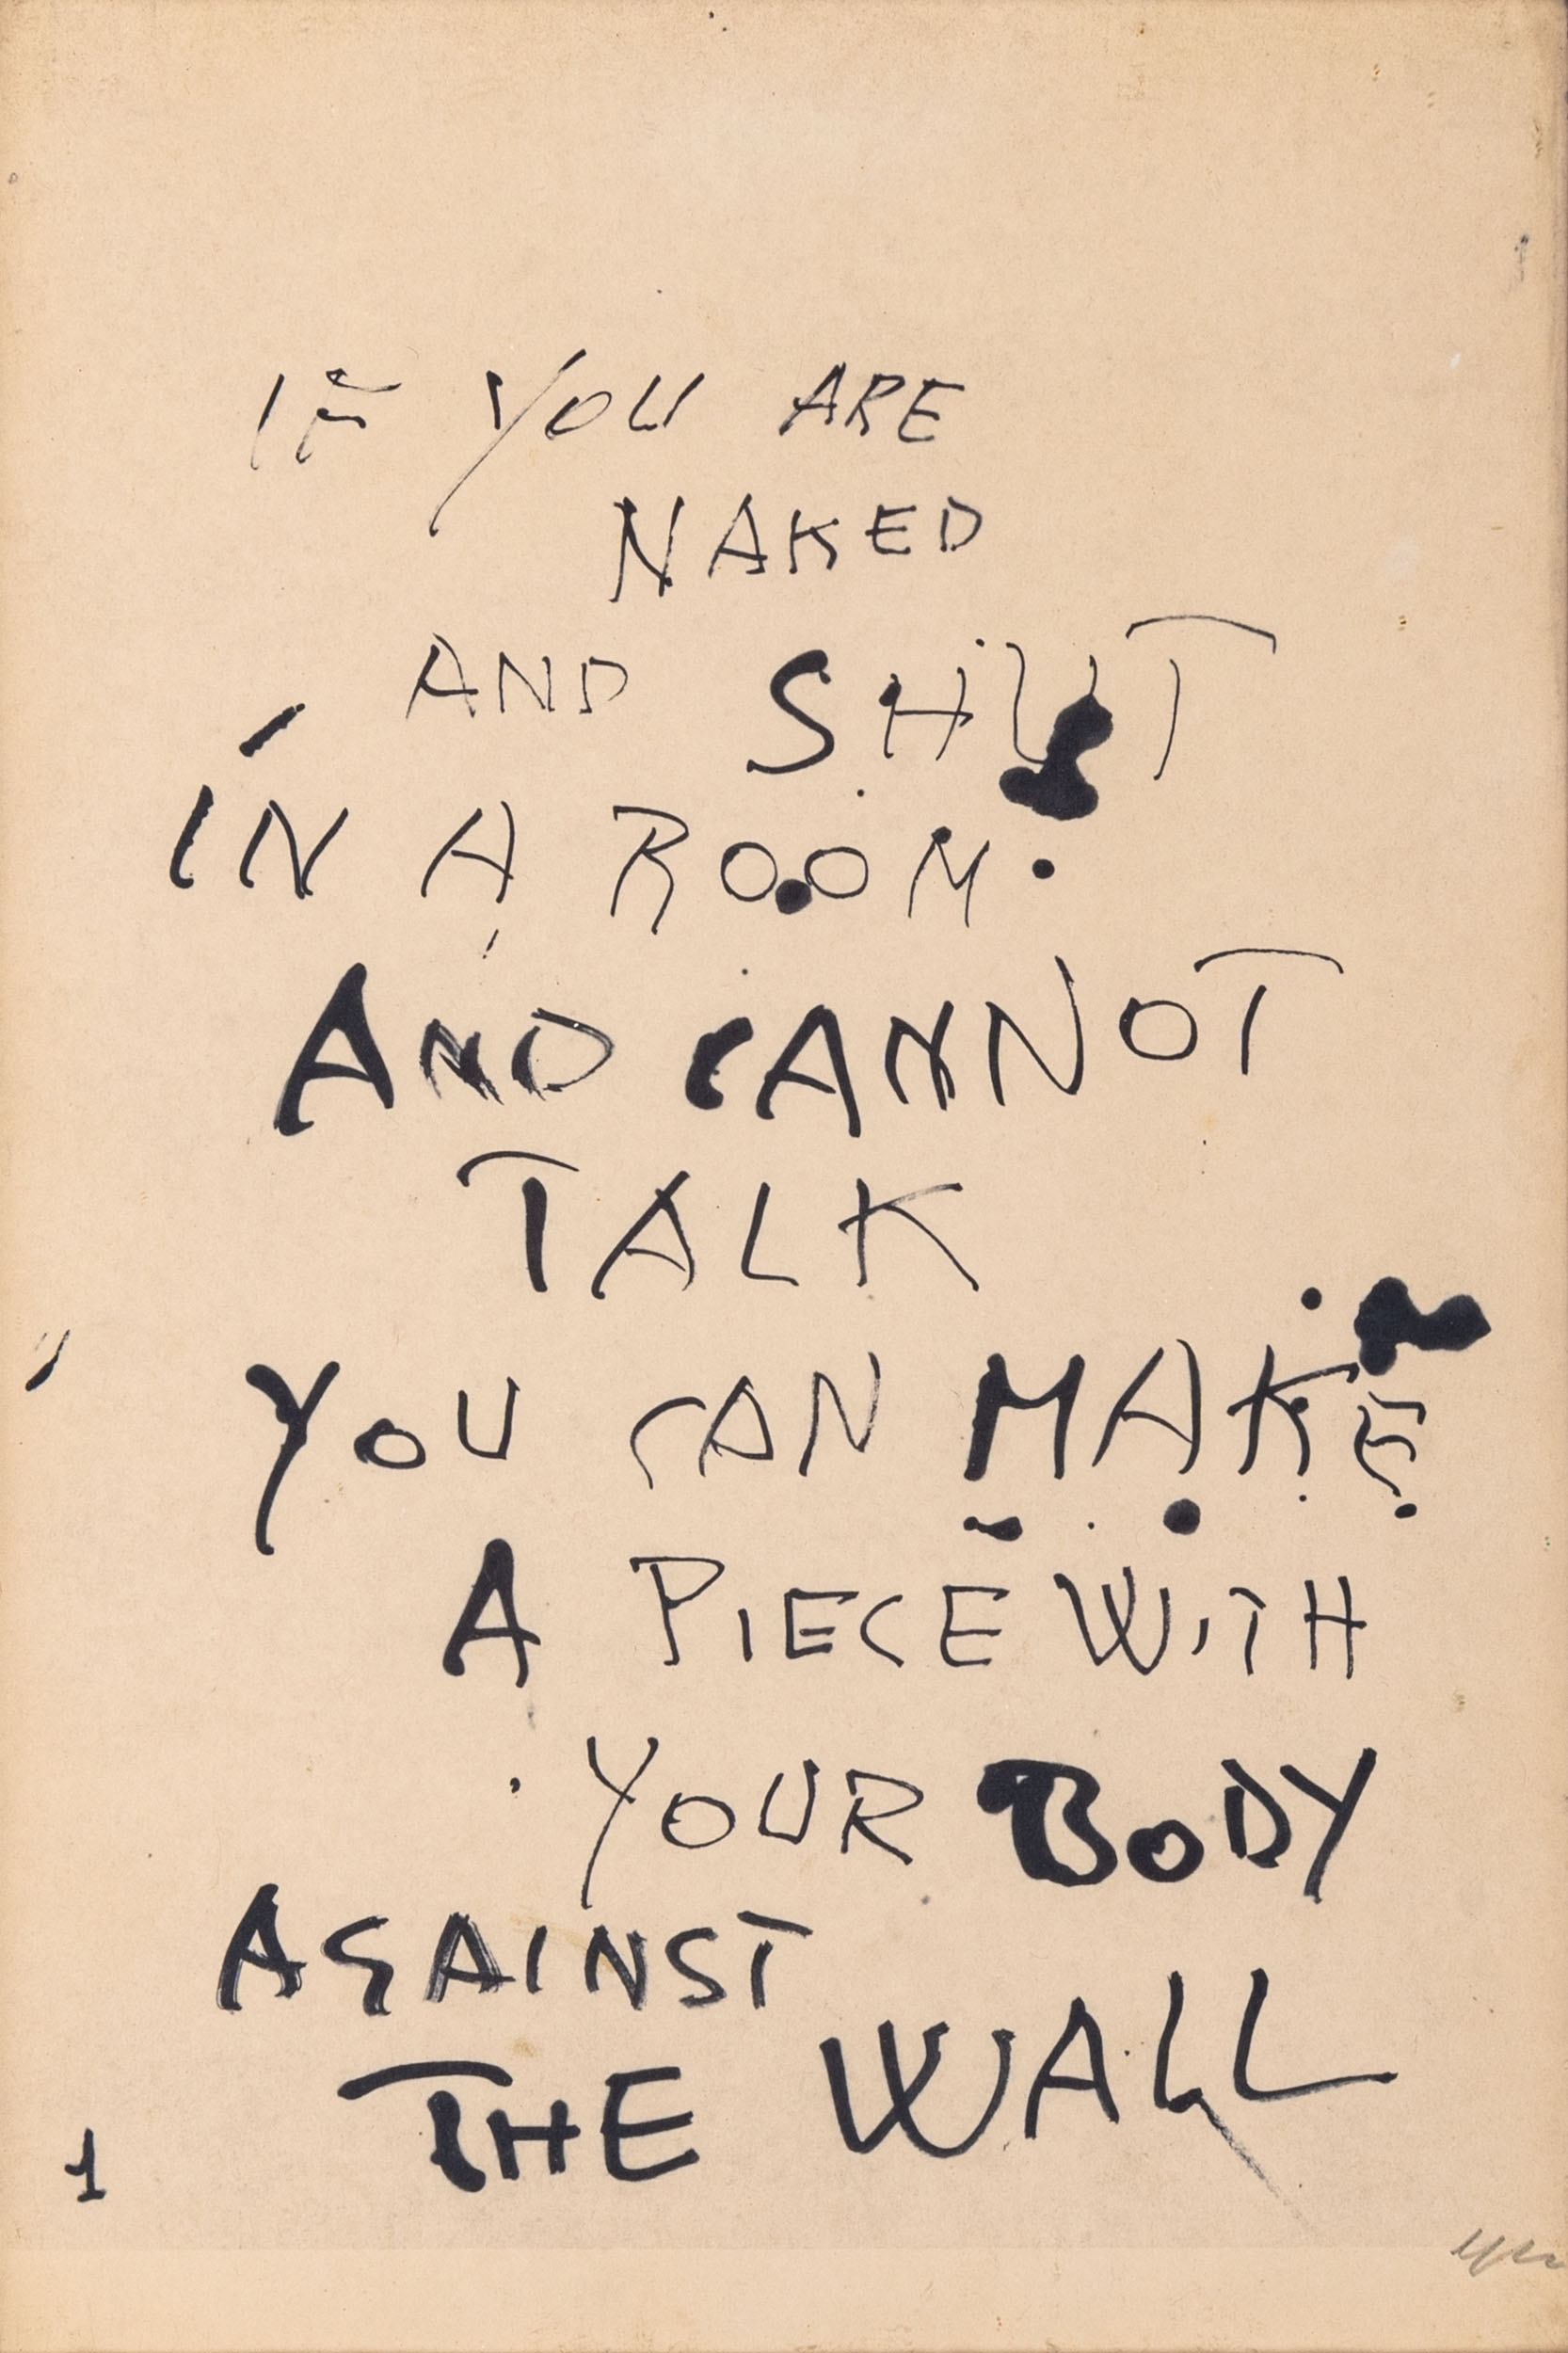 IF YOU ARE
NAKED
AND SHUT
IN A ROOM.
AND CANNOT
TALK
YOU CAN MAKE
A PIECE WITH
YOUR BODY
AGAINST
THE WALL
1